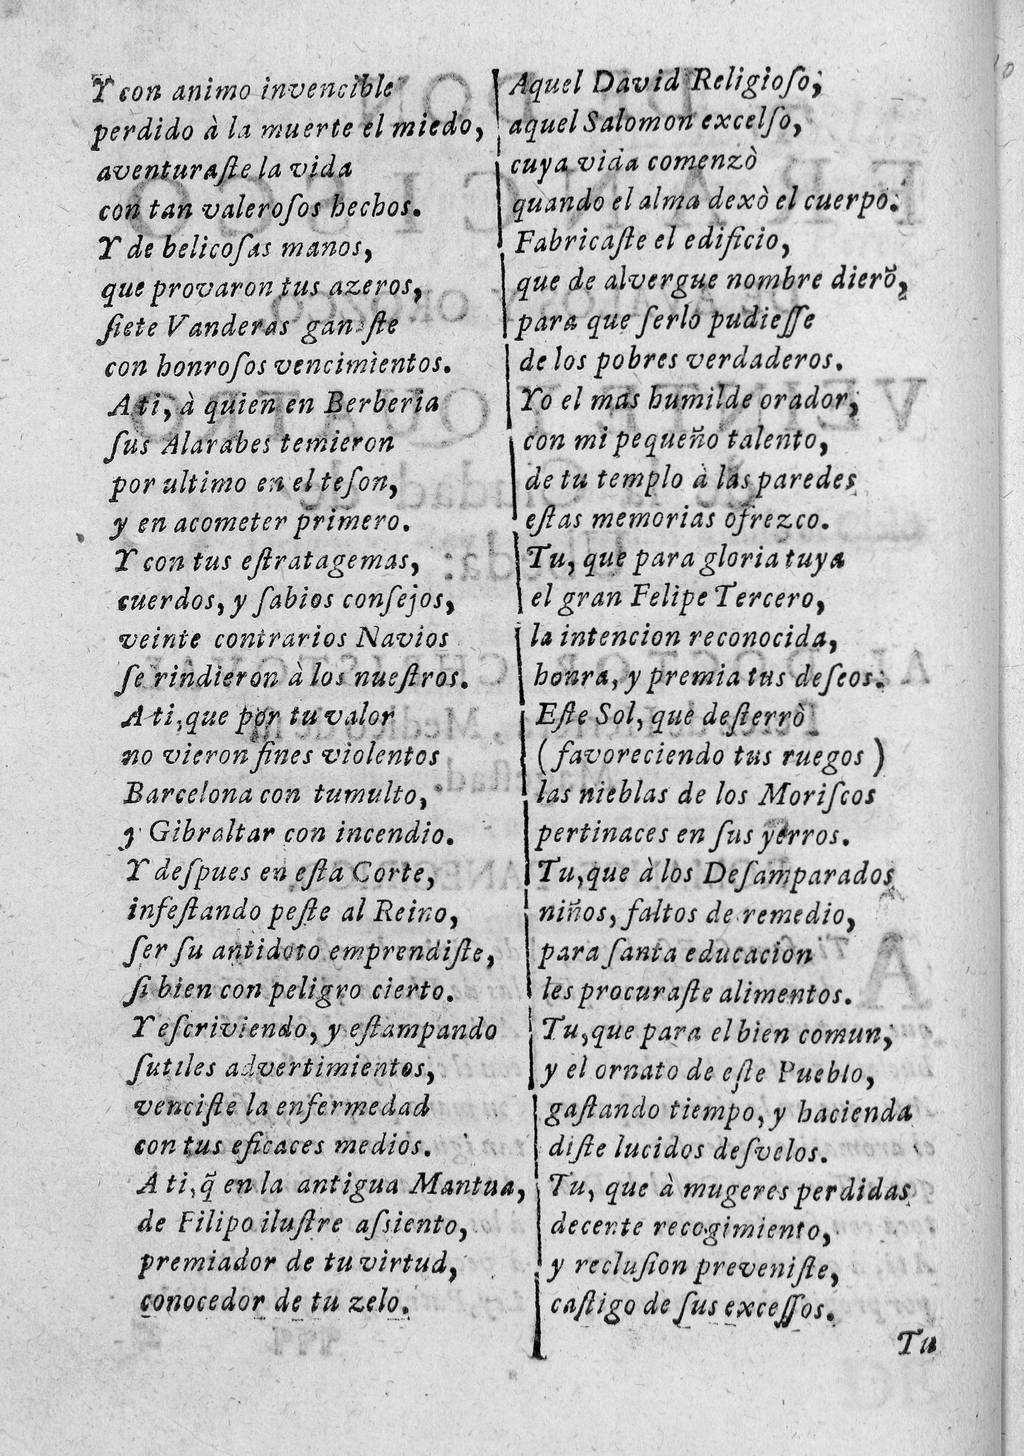 Y con animo invencible
perdido à la muerte el miedo,
aventuraſte la vida
con tan valeroſos hechos.
Y de belicoſas manos,
que provaron tus azeros,
ſiete Vanderas ganaſte
con honroſos vencimientos.
A ti, à quien en Berberia
ſus Alarabes temieron
por ultimo en el teſon,
y en acometer primero.
Y con tus eſtratagemas,
cuerdos, y ſabios conſejos,
veinte contrarios Navios
ſe rindieron à los nueſtros.
A ti, que por tu valor
no vieron fines violentos
Barcelona con tumulto,
y Gibraltar con incendio.
Y deſpues en eſta Corte,
infeſtando peſte al Reino,
ſer ſu antidoto emprendiſte,
ſi bien con peligro cierto.
Y eſcriviendo, y eſtampando
ſutiles advertimientos,
venciſte la enfermedad
con tus eficaces medios.
A ti, q̃ en la antigua Mantua,
de Filipo iluſtre aſsiento,
premiador de tu virtud,
conocedor de tu zelo.
Aquel David Religioſo,
aquel Salomon excelſo,
cuya vida comenzò
quando el alma dexò el cuerpo.
Fabricaſte el edificio,
que de alvergue nombre dierõ,
para que ſerlo pudieſſe
de los pobres verdaderos.
Yo el mas humilde orador,
con mi pequeño talento,
de tu templo à las paredes
eſtas memorias ofrezco.
Tu, que para gloria tuya
el gran Felipe Tercero,
la intencion reconocida,
honra, y premia tus deſeos.
Eſte Sol, que deſterrò
(favoreciendo tus ruegos)
las nieblas de los Moriſcos
pertinaces en ſus yerros.
Tu, que à los Deſamparados
niños, faltos de remedio,
para ſanta educacion
les procuraſte alimentos.
Tu, que para el bien comun,
y el ornato de eſte Pueblo,
gaſtando tiempo, y hacienda
diſte lucidos deſvelos.
Tu, que à mugeres perdidas
decente recogimiento,
y recluſion preveniſte,
caſtigo de ſus exceſſos.
Tu